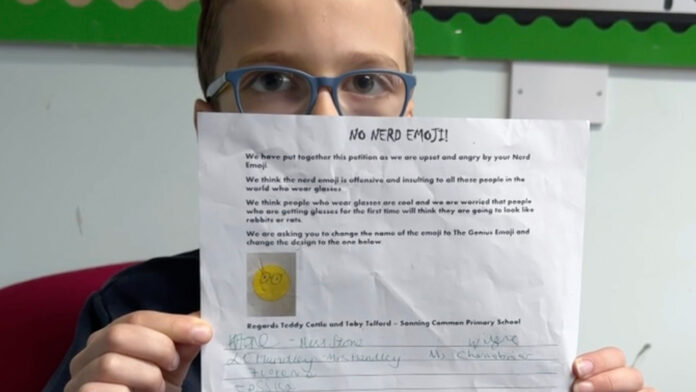 NO NERD EMOJI!
We have put together this petition as we are upset and angry by your Nerd
Emoji
We think the nerd emoji is offensive and insulting to all those people in the
world who wear glasses
We think people who wear glasses are cool and we are worried that people
who are getting glasses for the first time will think they are going to look like
rabbits or rats.
We are asking you to change the name of the emoji to The Genius Emoji and
change the design to the one below
Regards Teddy Cottle and Toby Telford – Sonning Common Primary School